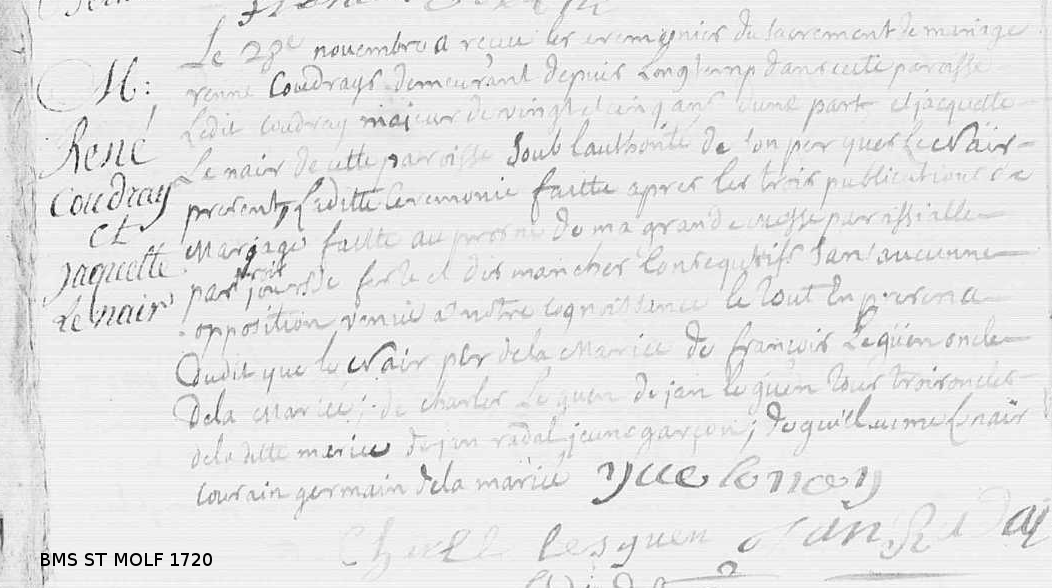 M:
René
Coudray
et
Jaquette
Le nair
Le 28e novembre a receu les ceremonies du sacrement de mariage
renné Coudrays demeurant depuis Longtemp dans cette paroisse
Ledit coudray majeur de vingt et cinq ans dune part et jacquette
Le nair de cette paroisse soub lauthorité de son per que Le Nair
present, Laditte Ceremonie faitte apres les trois publications de
Mariage faitte au prosne de ma grande messe paroissialle
par trois jours de feste et dismanches consequtifs sans aucunne
opposition venue a nostre cognoissance le tout En presence
Dudit yue le Nair per de la Mariee de francois Leguen oncle
Dela Mariee; de charles Le guen de jan le guen tous trois oncles
dela ditte mariee de jan radal jeune garcon; de guillaume Lenair
cousain germain dela mariée yue lenair
Charle Lesguen Jan Radal
BMS ST MOLF 1720